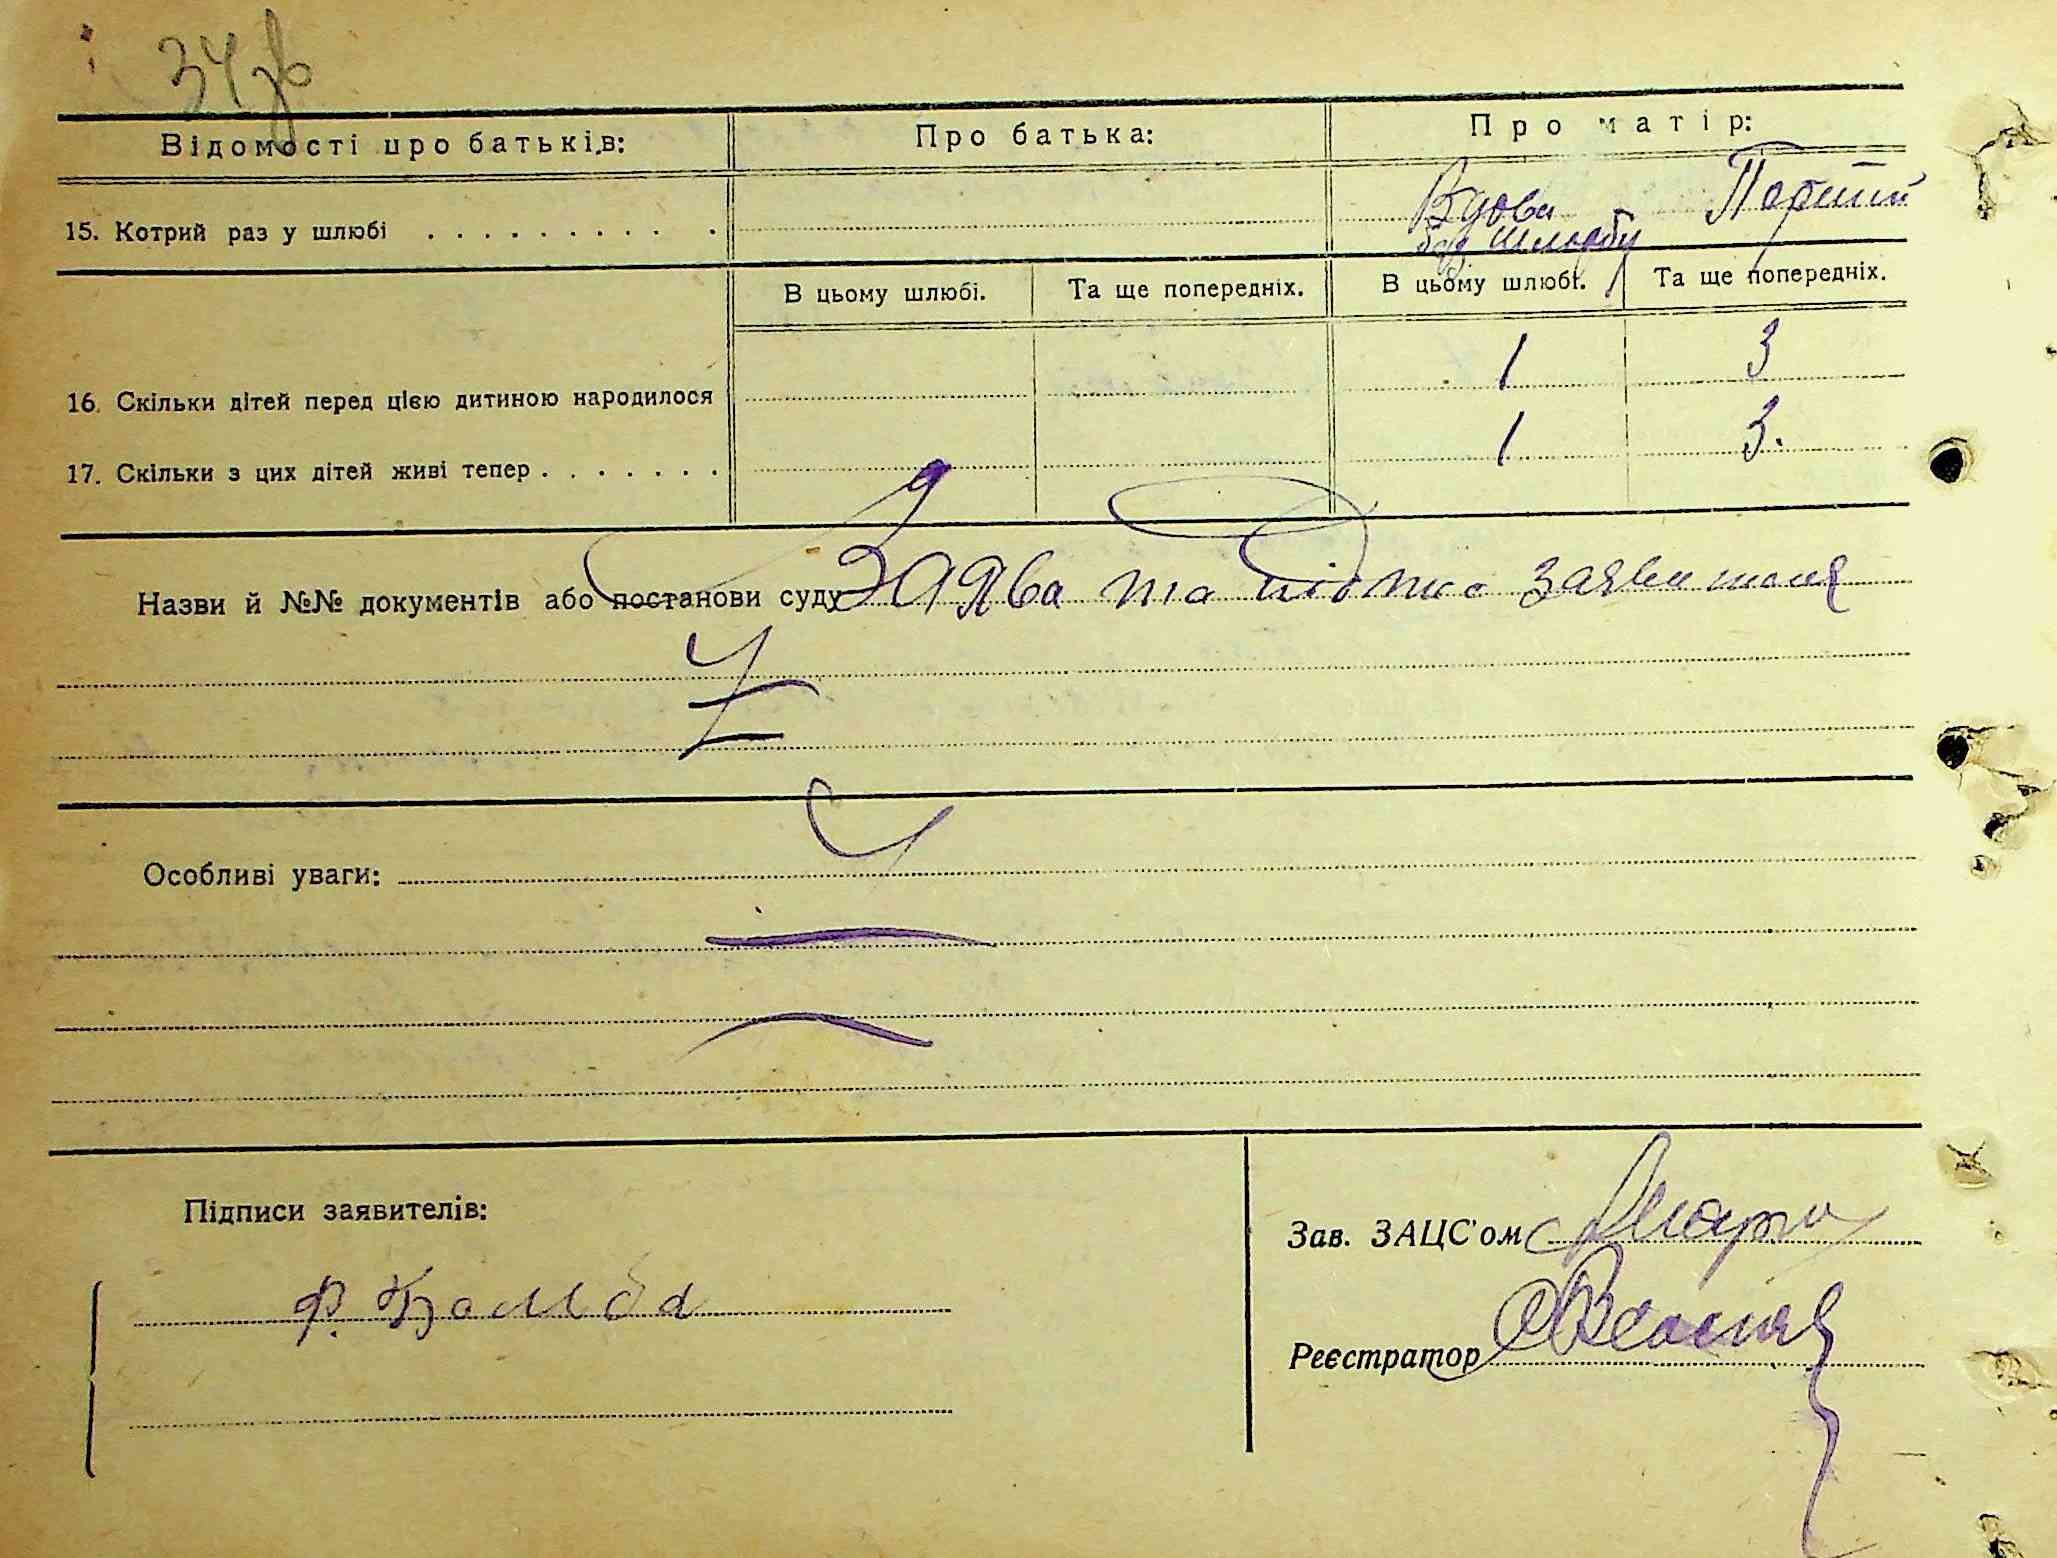 34 зв
Відомості про батьків: Про батька: Про матір:
Вдова Перший
15. Котрий раз у шлюбі . . . . . . . . . . без шлюбу
В цьому шлюбі. Та ще попередніх. В цьому шлюбі. Та ще попередніх.
16. Скільки дітей перед цією дитиною народилося 1 3
17. Скільки з цих дітей живі тепер . . . . . . . 1 3.
Назви й №№ документів або постанови суду Заява та заявителя
Особливі уваги:
Підписи заявителів:
Зав. ЗАЦС'ом
Ф.
Реєстратор